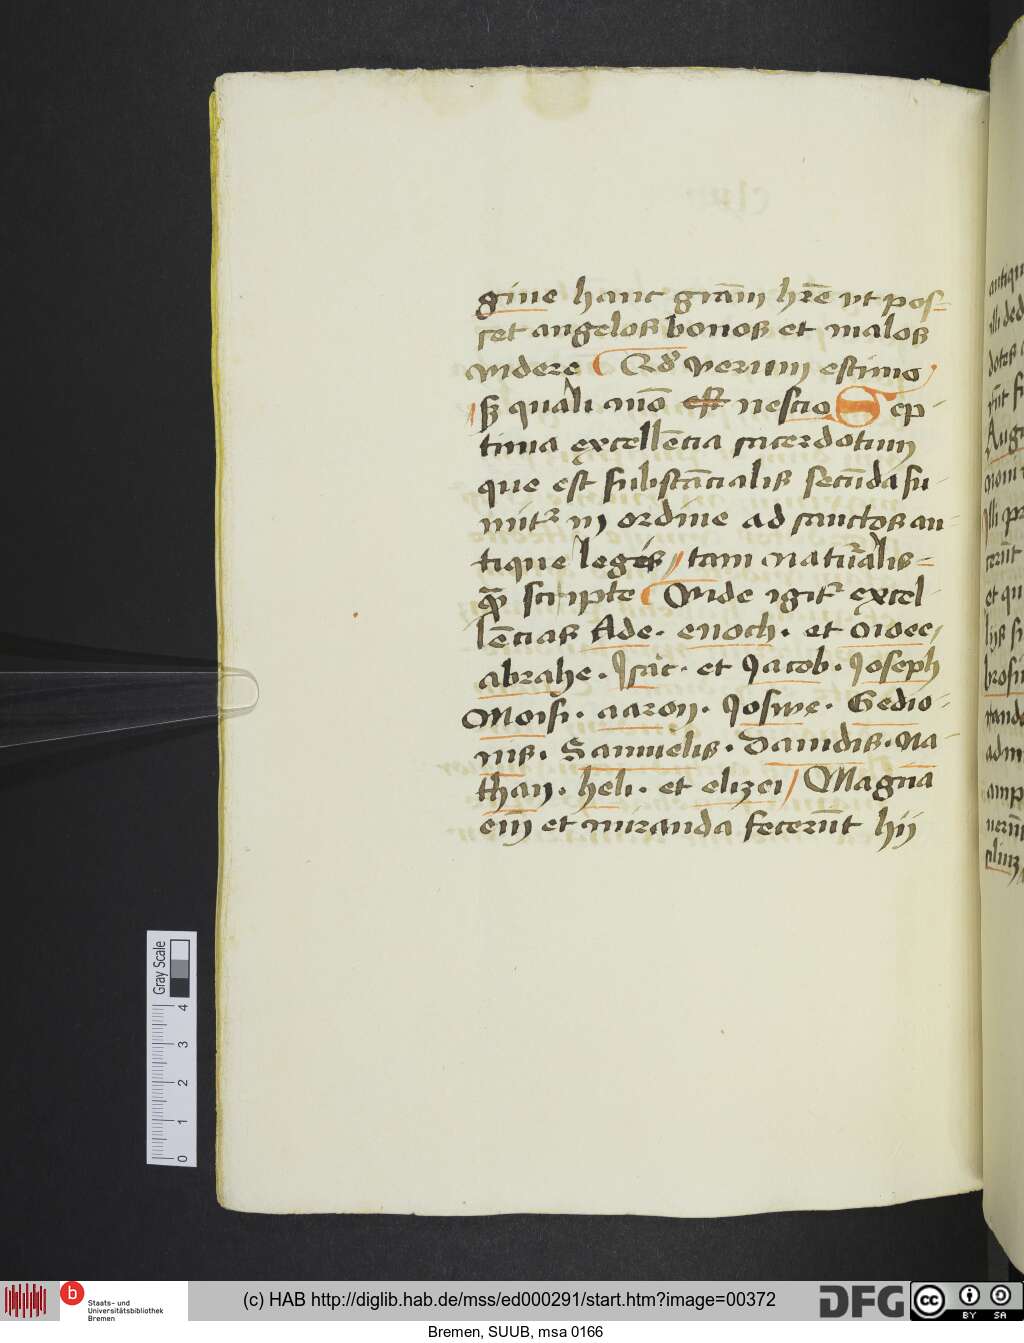 gine hanc grām hr̄e vt pos=
set angelos bonos et malos
videre Qd̕ verum estimo
sꝫ quali mō est nescio Sep-
tima excellēcia sacerdotum
que est substācialis secūda su-
mitr̄ in ordine ad sanctos an=
tique legis tam natur̄alis=
qꝫ scripte Vnde igitr̄ excel
lēcias Ade. enoch. et noee
abrahe. Isac. et Jacob. Joseph
Moisi. aaron. Josue. Gedio-
nis. Samuelis. Dauidis. Na-
than. heli. et elizei Magna
eīn et miranda fecerūt hij
Gray Scale
0 1 2 3 4
antiqu
illi ded
Augu
et qu
tand
adm
amp
Staats- und
Universitätsbibliothek
Bremen
(c) HAB http://diglib.hab.de/mss/ed000291/start.htm?image=00372
DFG
cc BY SA
Bremen, SUUB, msa 0166